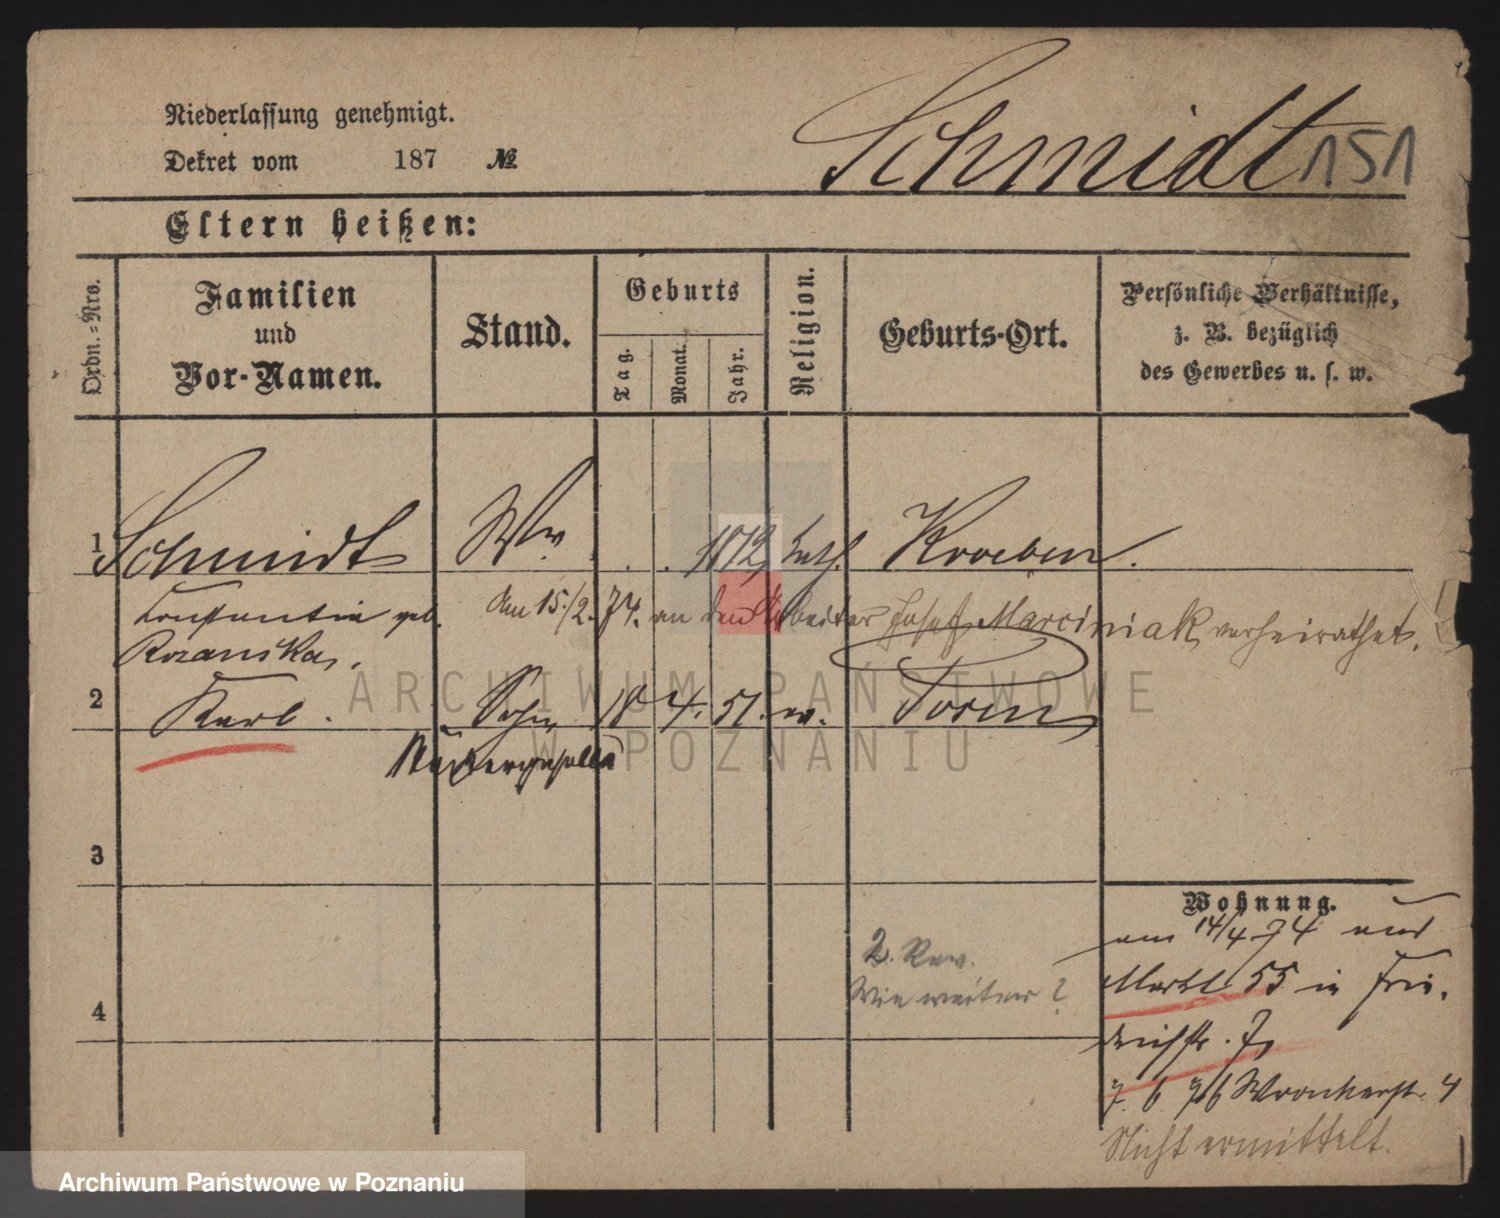 Niederlassung genehmigt.
Dekret vom 187 №
Schmidt 151
Eltern heißen:
Ordn.-Nro.
Familien und Vor-Namen.
Stand.
Geburts
Tag.
Monat.
Jahr.
Religion.
Geburts-Ort.
Persönliche Verhältnisse, z. B. bezüglich des Gewerbes u. s. w.
1 Schmidt Ww. . . kath. Kroeben.
Constantia geb. am 15./2. 74. an den Arbeiter Josef Marciniak verheirathet.
Rozanska.
2 Karl. Sohn 18 4. 51. ev. Posen
3
Wohnung.
am 14/4 74 aus
Markt 55 in Frie-
drichstr. 7,
2. Rev.
Wie weiter?
4
7. 6. 76 Wronkerstr. 4
Nicht ermittelt.
ARCHIWUM PAŃSTWOWE
W POZNANIU
Archiwum Państwowe w Poznaniu